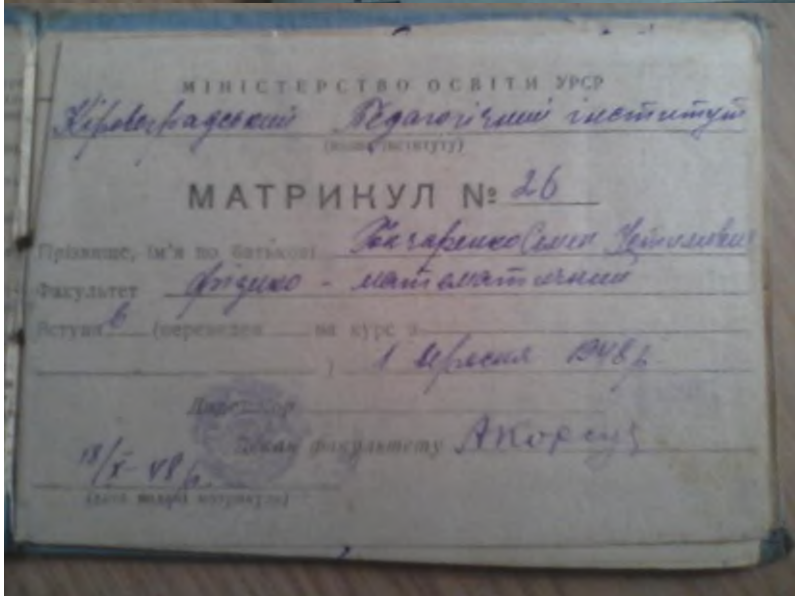 МІНІСТЕРСТВО ОСВІТИ УРСР
Кіровоградський Педагогічний інститут
(назва інституту)
МАТРИКУЛ № 26
Прізвище, ім'я по батькові Гончаренко Семен Устимович
Факультет фізико - математичний
Вступив (переведен на курс з
) 1 вересня 1948 р.
Директор
Декан факультету
18/X-48 р.
(дата видачі матрикула)